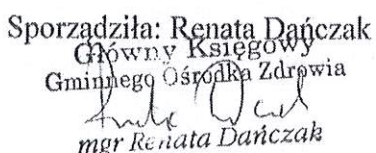 Sporządziła: Renata Dańczak
Główny Księgowy
Gminnego Ośrodka Zdrowia
mgr Renata Dańczak